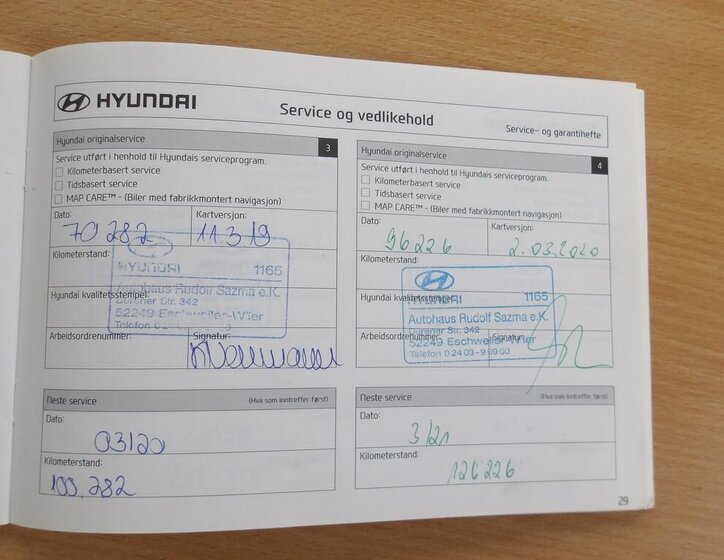 HYUNDAI
Service og vedlikehold
Service- og garantihefte
Hyundai originalservice
3
Service utført i henhold til Hyundais serviceprogram.
Kilometerbasert service
Tidsbasert service
MAP CARE™ - (Biler med fabrikkmontert navigasjon)
Dato:
Kartversjon:
70 282
11.3.19
Kilometerstand:
HYUNDAI 1165
Autohaus Rudolf Sazma e.K.
Hyundai kvalitetsstempel:
Dürener Str. 342
52249 Eschweiler-Wier
Telefon
Arbeidsordrenummer:
Signatur:
Neste service
(Hva som inntreffer først)
Dato:
03/20
Kilometerstand:
100.282
Hyundai originalservice
4
Service utført i henhold til Hyundais serviceprogram.
Kilometerbasert service
Tidsbasert service
MAP CARE™ - (Biler med fabrikkmontert navigasjon)
Dato:
Kartversjon:
96226
2.03.2020
Kilometerstand:
Hyundai kvalitetsstempel:
HYUNDAI 1165
Autohaus Rudolf Sazma e.K.
Dürener Str. 342
52249 Eschweiler-Wier
Telefon 0 24 03-9 99 00
Arbeidsordrenummer:
Signatur:
Neste service
(Hva som inntreffer først)
Dato:
3/21
Kilometerstand:
126 226
29